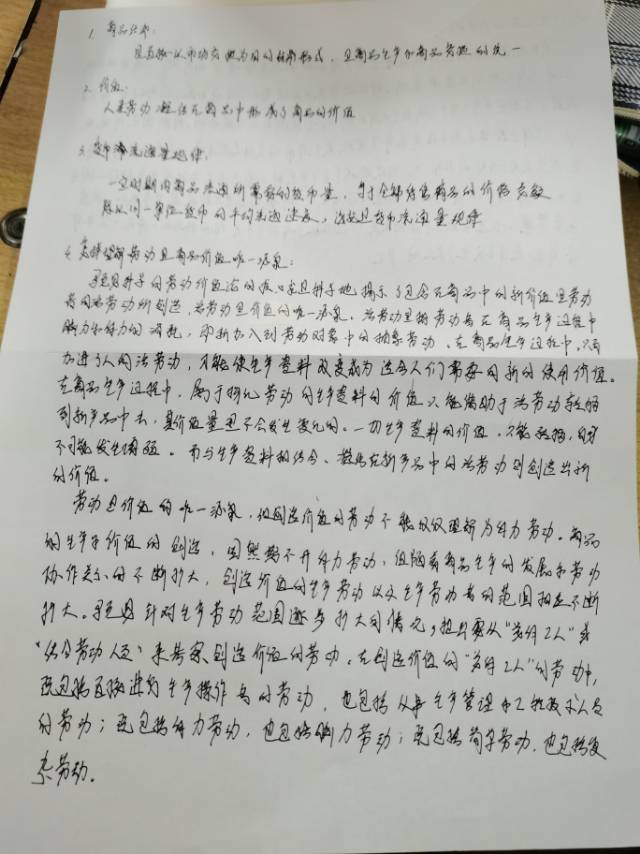 1. 商品经济:
是直接以市场交换为目的的经济形式,是商品生产和商品交换的统一
2. 价值:
人类劳动凝结在商品中形成了商品的价值
3. 货币流通量规律:
一定时期内商品流通所需要的货币量,等于全部待售商品的价格总额
除以同一单位货币的平均流通速度,这就是货币流通量规律
4. 怎样理解劳动是商品价值唯一源泉:
马克思科学的劳动价值论的 科学地揭示了包含在商品中的新价值是劳动
者的活劳动所创造,活劳动是价值的唯一源泉。活劳动是指劳动者在商品生产过程中
脑力和体力的消耗,即新加入到劳动对象中的抽象劳动。在商品生产过程中,只有
加进了人的活劳动,才能使生产资料改变成为适合人们需要的新的使用价值。
在商品生产过程中,属于物化劳动的生产资料的价值只能借助于活劳动转移
到新产品中去,其价值量是不会发生变化的。一切生产资料的价值,只能转移,自身
不可能发生增殖。而与生产资料相结合、凝结在新产品中的活劳动则创造出新
的价值。
劳动是价值的唯一源泉,但创造价值的劳动不能仅仅理解为体力劳动。商品
的生产和价值的创造,固然离不开体力劳动,但随着商品生产的发展和劳动
协作关系的不断扩大,创造价值的生产劳动以及生产劳动者的范围也在不断
扩大。马克思针对生产劳动范围逐步扩大的情况,提出要从“总体工人”或
“结合劳动人员”来考察创造价值的劳动。在创造价值的“总体工人”的劳动中,
既包括直接进行生产操作者的劳动,也包括从事生产管理和工程技术人员
的劳动;既包括体力劳动,也包括脑力劳动;既包括简单劳动,也包括复
杂劳动。